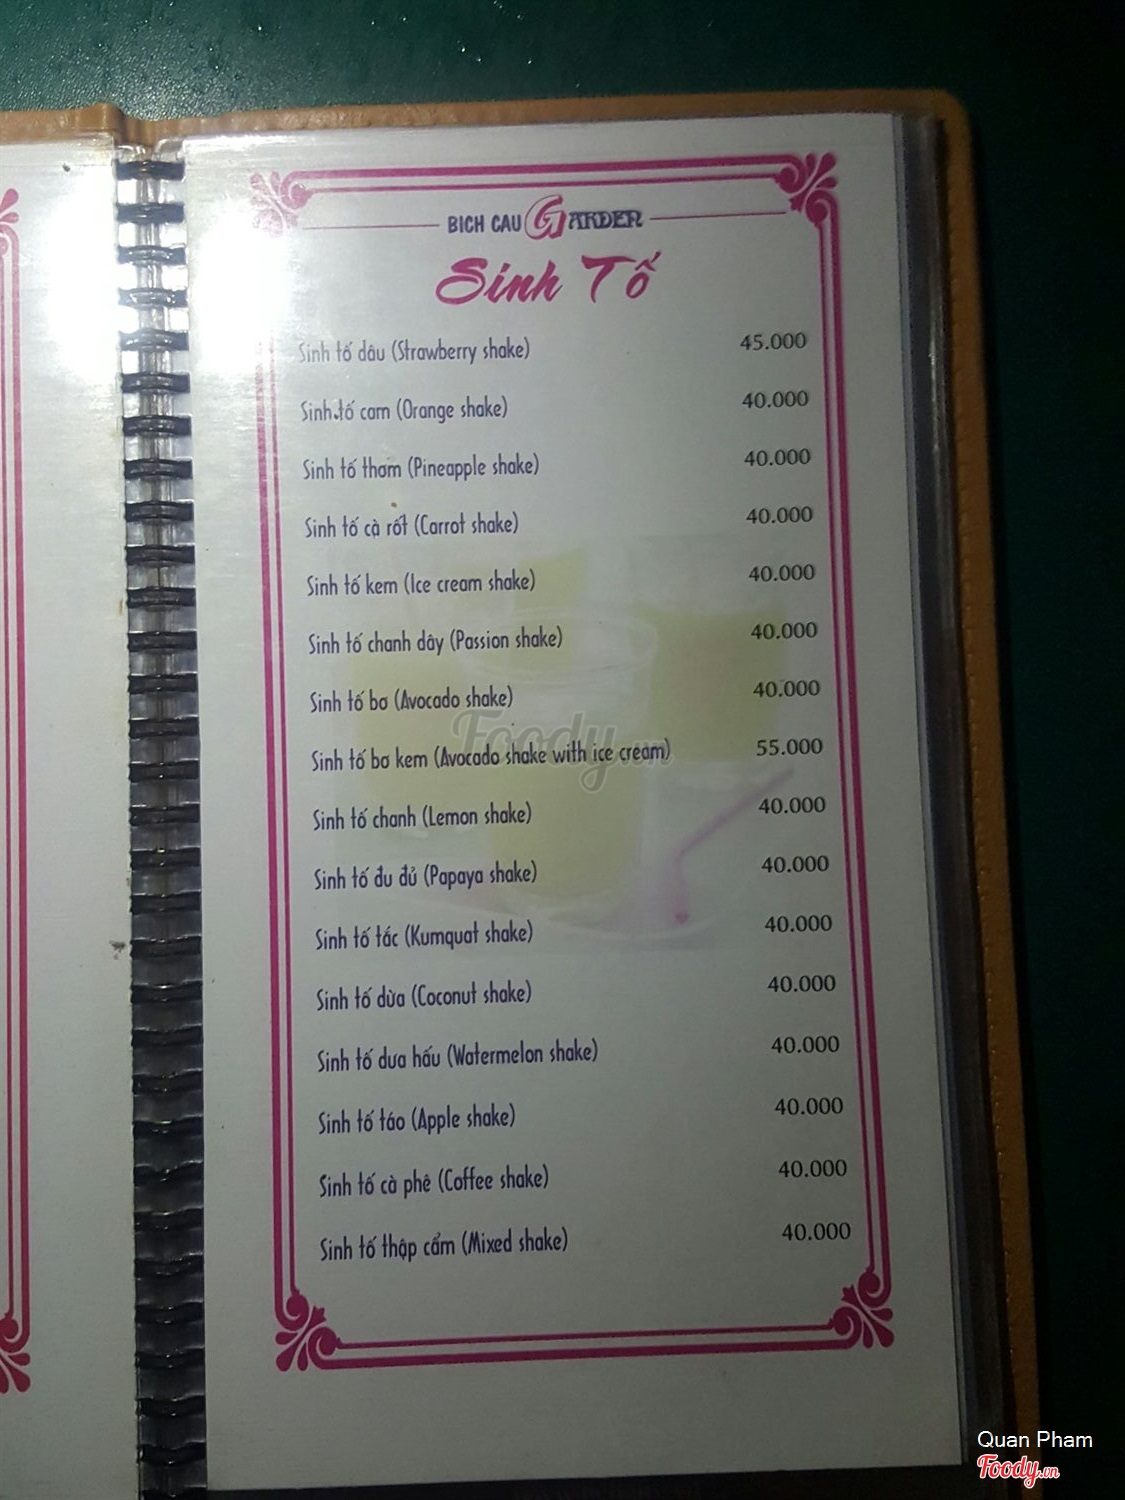 BICH CAU GARDEN
Sinh Tố
Sinh tố dâu (Strawberry shake) 45.000
Sinh tố cam (Orange shake) 40.000
Sinh tố thơm (Pineapple shake) 40.000
Sinh tố cà rốt (Carrot shake) 40.000
Sinh tố kem (Ice cream shake) 40.000
Sinh tố chanh dây (Passion shake) 40.000
Sinh tố bơ (Avocado shake) 40.000
Sinh tố bơ kem (Avocado shake with ice cream) 55.000
Sinh tố chanh (Lemon shake) 40.000
Sinh tố đu đủ (Papaya shake) 40.000
Sinh tố tắc (Kumquat shake) 40.000
Sinh tố dừa (Coconut shake) 40.000
Sinh tố dưa hấu (Watermelon shake) 40.000
Sinh tố táo (Apple shake) 40.000
Sinh tố cà phê (Coffee shake) 40.000
Sinh tố thập cẩm (Mixed shake) 40.000
Foody.vn
Quan Pham
Foody.vn